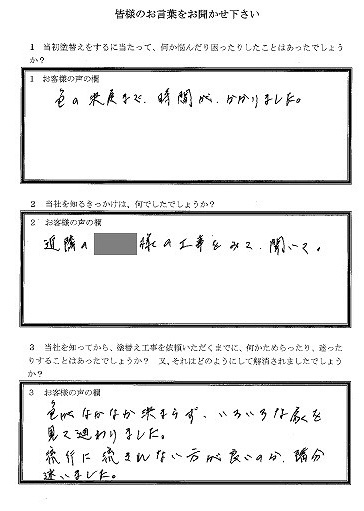 皆様のお言葉をお聞かせ下さい
1 当初塗替えをするに当たって、何か悩んだり困ったりしたことはあったでしょう
か？
1 お客様の声の欄
色の決定まで、時間が、かかりました。
2 当社を知るきっかけは、何でしたでしょうか？
2 お客様の声の欄
近隣の 様の工事をみて、聞いて。
3 当社を知ってから、塗替え工事を依頼いただくまでに、何かためらったり、迷った
りすることはあったでしょうか？ 又、それはどのようにして解消されましたでしょう
か？
3 お客様の声の欄
色がなかなか決まらず、いろいろな家を
見て廻わりました。
流行に流されない方が良いのか、随分
迷いました。